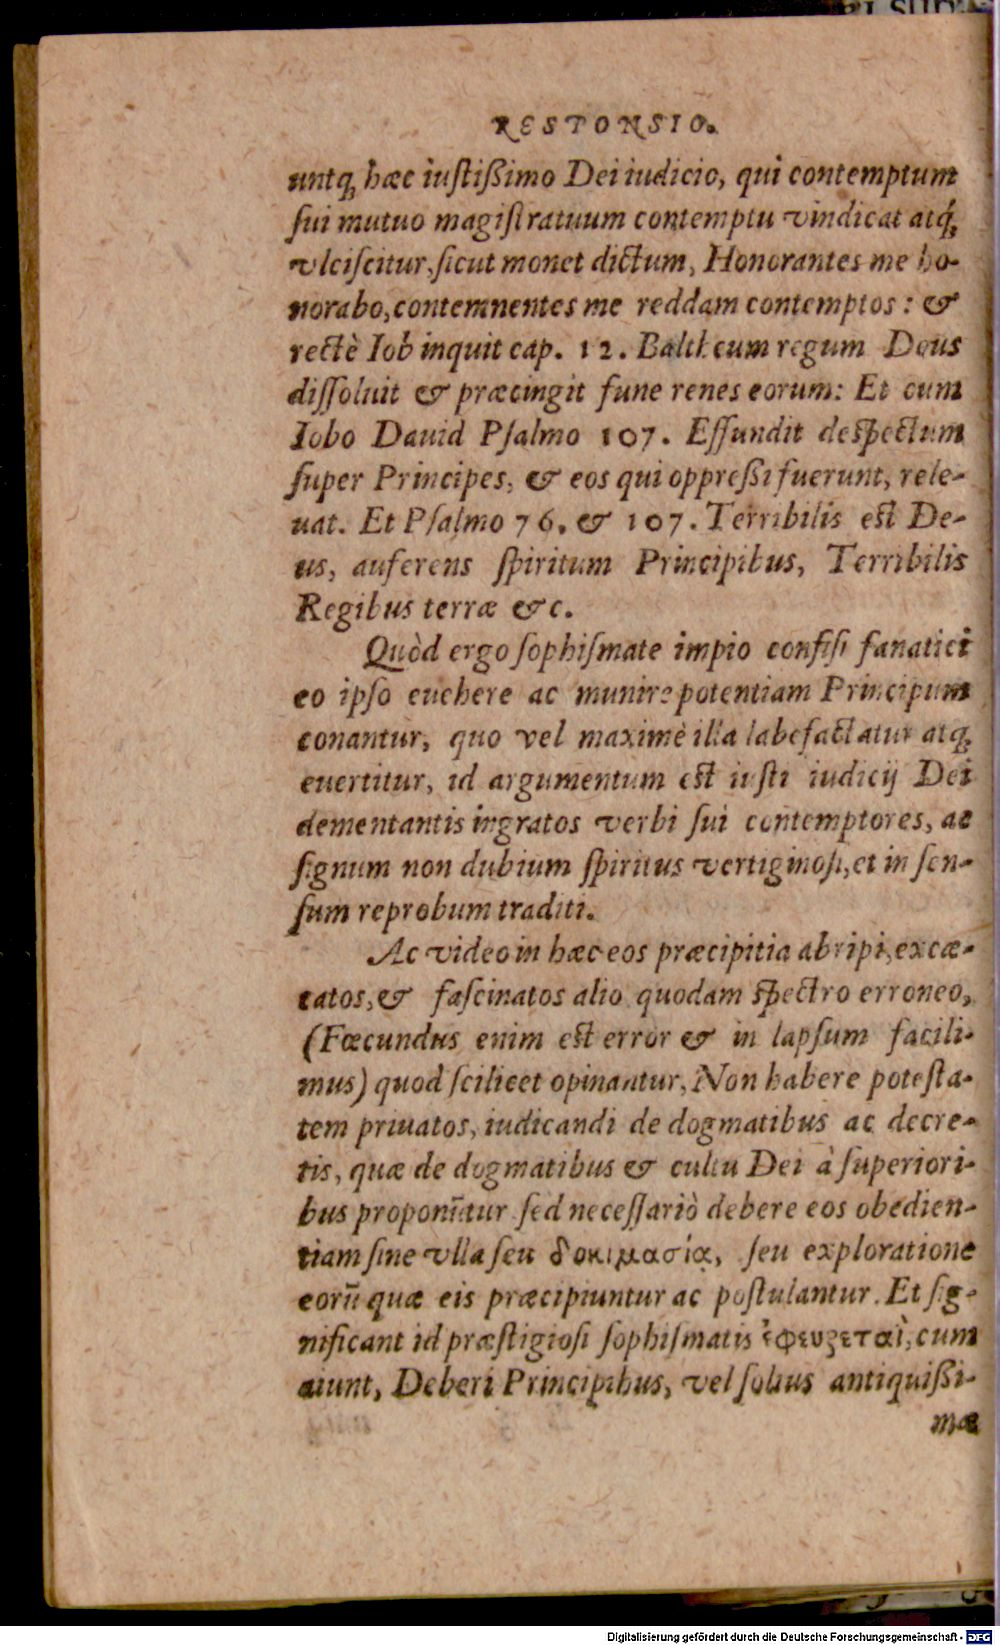 RESPONSIO.
untq́; hæc iustißimo Dei iudicio, qui contemptum
ſui mutuo magiſtratuum contemptu vindicat atq́;
vlciſcitur, ſicut monet dictum, Honorantes me ho-
norabo, contemnentes me reddam contemptos: &
rectè Iob inquit cap. 12. Baltheum regum Deus
diſſoluit & præcingit fune renes eorum: Et cum
Iobo Dauid Pſalmo 107. Effundit deſpectum
ſuper Principes, & eos qui oppreßi fuerunt, rele-
uat. Et Pſalmo 76. & 107. Terribilis eſt De-
us, auferens ſpiritum Principibus, Terribilis
Regibus terræ &c.
Quòd ergo ſophiſmate impio confiſi fanatici
eo ipſo euehere ac munire potentiam Principum
conantur, quo vel maximè illa labefactatur atq;
euertitur, id argumentum eſt iuſti iudicij Dei
dementantis ingratos verbi ſui contemptores, ac
ſignum non dubium ſpiritus vertiginoſi, et in ſen-
ſum reprobum traditi.
Ac video in hæc eos præcipitia abripi, excæ-
catos, & faſcinatos alio quodam ſpectro erroneo,
(Fœcundus enim eſt error & in lapſum facili-
mus) quod ſcilicet opinantur, Non habere poteſta-
tem priuatos, iudicandi de dogmatibus ac decre-
tis, quæ de dogmatibus & cultu Dei à ſuperiori-
bus proponũtur ſed neceſſariò debere eos obedien-
tiam ſine vlla ſeu δοκιμασία, ſeu exploratione
eorũ quæ eis præcipiuntur ac poſtulantur. Et ſig-
nificant id præſtigioſi ſophiſmatis ἐφευξεταὶ, cum
aiunt, Deberi Principibus, vel ſolius antiquißi-
mæ
Digitalisierung gefördert durch die Deutsche Forschungsgemeinschaft - DFG